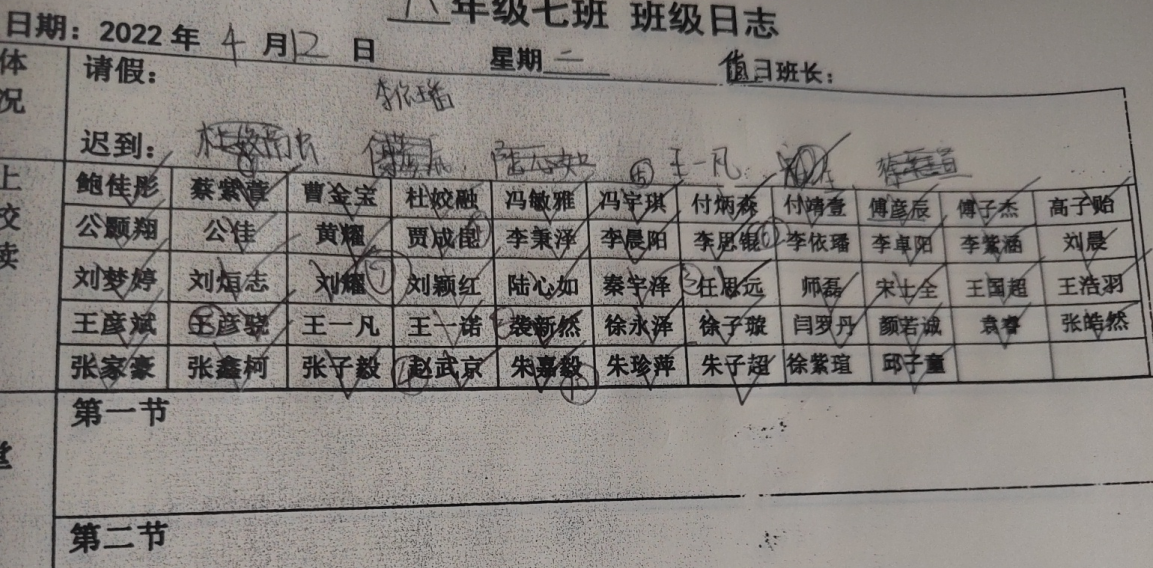 八年级七班 班级日志
日期：2022年 4月12日 星期二 值日班长：
体
况
请假：
李依璠
迟到： 王一凡
上
交
鲍佳彤 蔡紫萱 曹金宝 杜姣融 冯敏雅 冯宇琪 付炳森 付靖萱 傅彦辰 傅子杰 高子贻
公颢翔 公佳 黄耀 贾成昆 李秉泽 李晨阳 李思锟 李依璠 李卓阳 李紫涵 刘晨
刘梦婷 刘烜志 刘耀 刘颖红 陆心如 秦宇泽 任思远 师磊 宋士全 王国超 王浩羽
王彦斌 王彦骁 王一凡 王一诺 袭新然 徐永泽 徐子璇 闫罗丹 颜若诚 袁睿 张皓然
张家豪 张鑫柯 张子毅 赵武京 朱嘉毅 朱珍萍 朱子超 徐紫瑄 邱子童
第一节
第二节